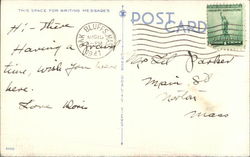 THIS SPACE FOR WRITING MESSAGES
POST CARD
OAK BLUFFS, MASS.
Hi- There
Having a grand
time, wish you were
here.
Love Doris
Parker
Main St
Norton
Mass